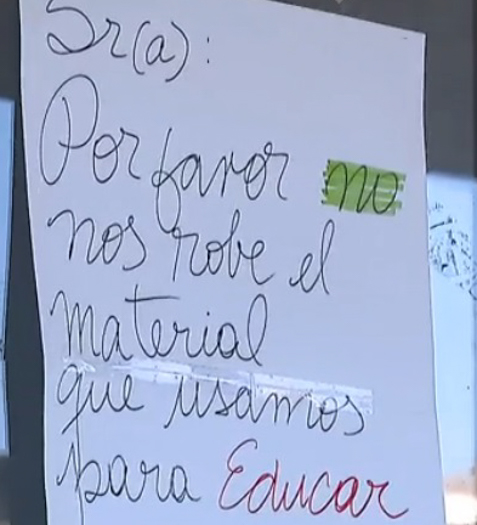 Sr(a):
Por favor no
nos robe el
material
que usamos
para Educar